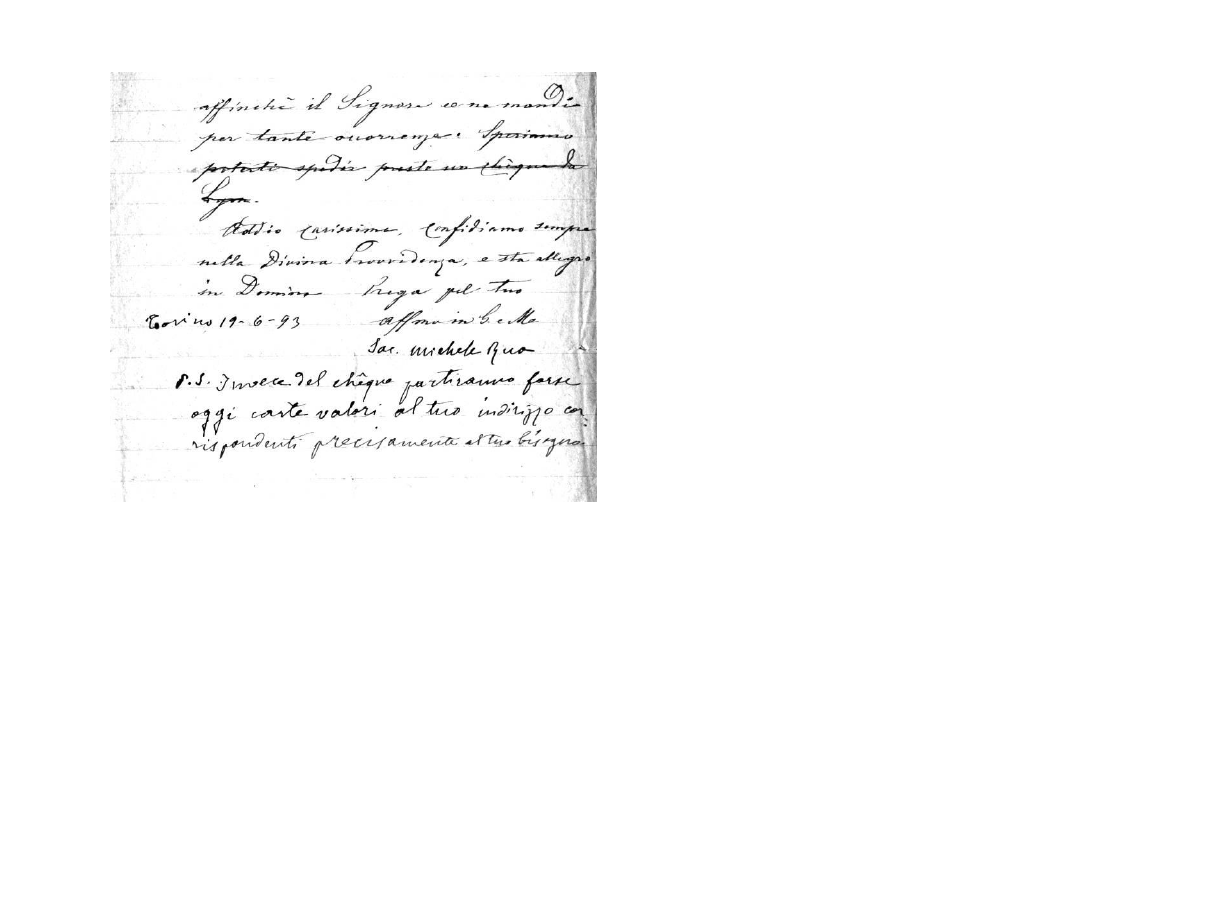 affinchè il Signore ce ne mandi
per tante ocorrenze. Speriamo
poterti spedir presto un chèque da
Lyon.
Addio carissimo, Confidiamo sempre
nella Divina Provvidenza, e sta allegro
in Domino Prega pel tuo
Torino 19-6-93 affmo in G. e M.
Sac. Michele Rua
P.S. Invece del chêque partiranno forse
oggi carte valori al tuo indirizzo cor-
rispondenti precisamente al tuo bisogno